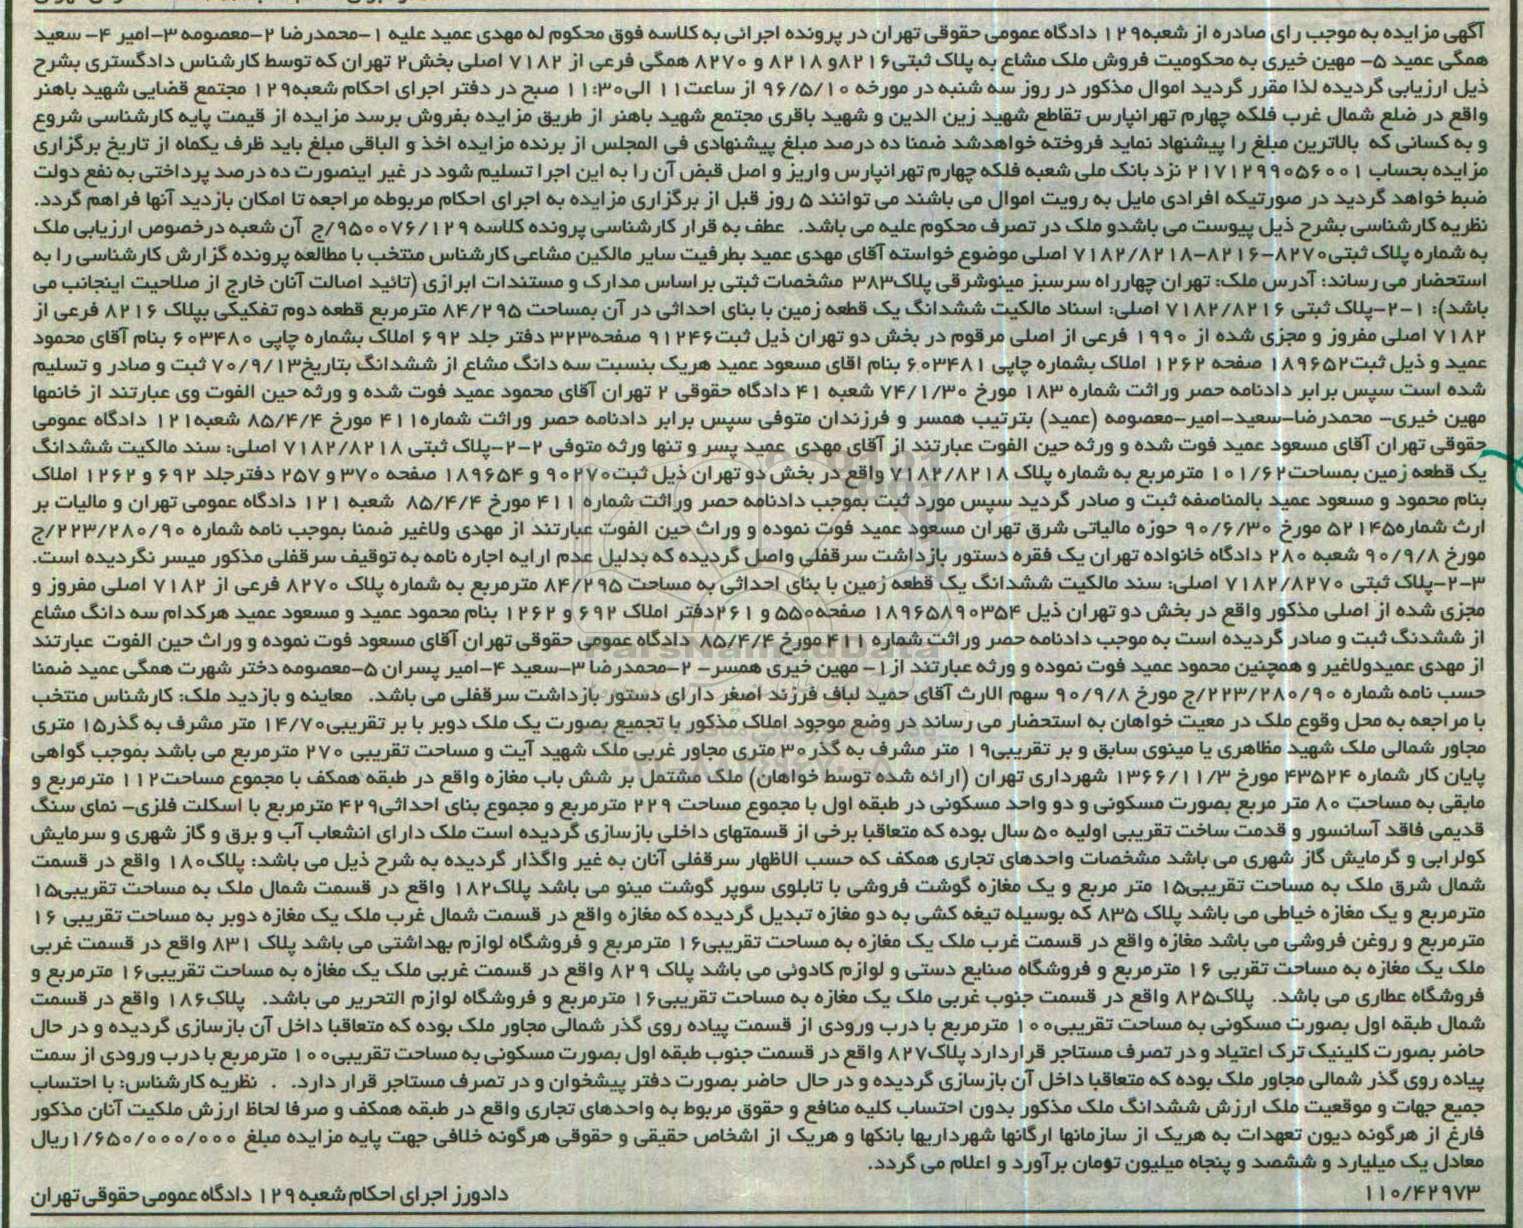 آگهی مزایده به موجب رای صادره از شعبه۱۲۹ دادگاه عمومی حقوقی تهران در پرونده اجرائی به کلاسه فوق محکوم له مهدی عمید علیه ۱-محمدرضا ۲-معصومه ۳-امیر ۴- سعید
همگی عمید ۵- مهین خیری به محکومیت فروش ملک مشاع به پلاک ثبتی۸۲۱۶و ۸۲۱۸ و ۸۲۷۰ همگی فرعی از ۷۱۸۲ اصلی بخش۲ تهران که توسط کارشناس دادگستری بشرح
ذیل ارزیابی گردیده لذا مقرر گردید اموال مذکور در روز سه شنبه در مورخه ۹۶/۵/۱۰ از ساعت۱۱ الی۱۱:۳۰ صبح در دفتر اجرای احکام شعبه۱۲۹ مجتمع قضایی شهید باهنر
واقع در ضلع شمال غرب فلکه چهارم تهرانپارس تقاطع شهید زین الدین و شهید باقری مجتمع شهید باهنر از طریق مزایده بفروش برسد مزایده از قیمت پایه کارشناسی شروع
و به کسانی که بالاترین مبلغ را پیشنهاد نماید فروخته خواهدشد ضمنا ده درصد مبلغ پیشنهادی فی المجلس از برنده مزایده اخذ و الباقی مبلغ باید ظرف یکماه از تاریخ برگزاری
مزایده بحساب ۲۱۷۱۲۹۹۰۵۶۰۰۱ نزد بانک ملی شعبه فلکه چهارم تهرانپارس واریز و اصل قبض آن را به این اجرا تسلیم شود در غیر اینصورت ده درصد پرداختی به نفع دولت
ضبط خواهد گردید در صورتیکه افرادی مایل به رویت اموال می باشند می توانند ۵ روز قبل از برگزاری مزایده به اجرای احکام مربوطه مراجعه تا امکان بازدید آنها فراهم گردد.
نظریه کارشناسی بشرح ذیل پیوست می باشدو ملک در تصرف محکوم علیه می باشد. عطف به قرار کارشناسی پرونده کلاسه ۹۵۰۰۷۶/۱۲۹/ج آن شعبه درخصوص ارزیابی ملک
به شماره پلاک ثبتی۸۲۷۰-۸۲۱۶-۷۱۸۲/۸۲۱۸ اصلی موضوع خواسته آقای مهدی عمید بطرفیت سایر مالکین مشاعی کارشناس منتخب با مطالعه پرونده گزارش کارشناسی را به
استحضار می رساند: آدرس ملک: تهران چهارراه سرسبز مینوشرقی پلاک۳۸۳ مشخصات ثبتی براساس مدارک و مستندات ابرازی (تائید اصالت آنان خارج از صلاحیت اینجانب می
باشد): ۱-۲-پلاک ثبتی ۷۱۸۲/۸۲۱۶ اصلی: اسناد مالکیت ششدانگ یک قطعه زمین با بنای احداثی در آن بمساحت ۸۴/۲۹۵ مترمربع قطعه دوم تفکیکی بپلاک ۸۲۱۶ فرعی از
۷۱۸۲ اصلی مفروز و مجزی شده از ۱۹۹۰ فرعی از اصلی مرقوم در بخش دو تهران ذیل ثبت۹۱۲۴۶ صفحه۳۲۳ دفتر جلد ۶۹۲ املاک بشماره چاپی ۶۰۳۴۸۰ بنام آقای محمود
عمید و ذیل ثبت۱۸۹۶۵۲ صفحه ۱۲۶۲ املاک بشماره چاپی ۶۰۳۴۸۱ بنام اقای مسعود عمید هریک بنسبت سه دانگ مشاع از ششدانگ بتاریخ۷۰/۹/۱۳ ثبت و صادر و تسلیم
شده است سپس برابر دادنامه حصر وراثت شماره ۱۸۳ مورخ ۷۴/۱/۳۰ شعبه ۴۱ دادگاه حقوقی ۲ تهران آقای محمود عمید فوت شده و ورثه حین الفوت وی عبارتند از خانمها
مهین خیری- محمدرضا-سعید-امیر-معصومه (عمید) بترتیب همسر و فرزندان متوفی سپس برابر دادنامه حصر وراثت شماره۴۱۱ مورخ ۸۵/۴/۴ شعبه۱۲۱ دادگاه عمومی
حقوقی تهران آقای مسعود عمید فوت شده و ورثه حین الفوت عبارتند از آقای مهدی عمید پسر و تنها ورثه متوفی ۲-۲-پلاک ثبتی ۷۱۸۲/۸۲۱۸ اصلی: سند مالکیت ششدانگ
یک قطعه زمین بمساحت۱۰۱/۶۲ مترمربع به شماره پلاک ۷۱۸۲/۸۲۱۸ واقع در بخش دو تهران ذیل ثبت۹۰۲۷۰ و ۱۸۹۶۵۴ صفحه ۳۷۰ و ۲۵۷ دفترجلد ۶۹۲ و ۱۲۶۲ املاک
بنام محمود و مسعود عمید بالمناصفه ثبت و صادر گردید سپس مورد ثبت بموجب دادنامه حصر وراثت شماره ۴۱۱ مورخ ۸۵/۴/۴ شعبه ۱۲۱ دادگاه عمومی تهران و مالیات بر
ارث شماره۵۲۱۴۵ مورخ ۹۰/۶/۳۰ حوزه مالیاتی شرق تهران مسعود عمید فوت نموده و وراث حین الفوت عبارتند از مهدی ولاغیر ضمنا بموجب نامه شماره ۲۲۳/۲۸۰/۹۰/ج
مورخ ۹۰/۹/۸ شعبه ۲۸۰ دادگاه خانواده تهران یک فقره دستور بازداشت سرقفلی واصل گردیده که بدلیل عدم ارایه اجاره نامه به توقیف سرقفلی مذکور میسر نگردیده است.
۳-۲-پلاک ثبتی ۷۱۸۲/۸۲۷۰ اصلی: سند مالکیت ششدانگ یک قطعه زمین با بنای احداثی به مساحت ۸۴/۲۹۵ مترمربع به شماره پلاک ۸۲۷۰ فرعی از ۷۱۸۲ اصلی مفروز و
مجزی شده از اصلی مذکور واقع در بخش دو تهران ذیل ۱۸۹۶۵۸۹۰۳۵۴ صفحه۵۵۰ و ۲۶۱دفتر املاک ۶۹۲ و ۱۲۶۲ بنام محمود عمید و مسعود عمید هرکدام سه دانگ مشاع
از ششدنگ ثبت و صادر گردیده است به موجب دادنامه حصر وراثت شماره ۴۱۱ مورخ ۸۵/۴/۴ دادگاه عمومی حقوقی تهران آقای مسعود فوت نموده و وراث حین الفوت عبارتند
از مهدی عمیدولاغیر و همچنین محمود عمید فوت نموده و ورثه عبارتند از۱- مهین خیری همسر- ۲-محمدرضا ۳-سعید ۴-امیر پسران ۵-معصومه دختر شهرت همگی عمید ضمنا
حسب نامه شماره ۲۲۳/۲۸۰/۹۰/ج مورخ ۹۰/۹/۸ سهم الارث آقای حمید لباف فرزند اصغر دارای دستور بازداشت سرقفلی می باشد. معاینه و بازدید ملک: کارشناس منتخب
با مراجعه به محل وقوع ملک در معیت خواهان به استحضار می رساند در وضع موجود املاک مذکور با تجمیع بصورت یک ملک دوبر با بر تقریبی۱۴/۷۰ متر مشرف به گذر۱۵ متری
مجاور شمالی ملک شهید مظاهری یا مینوی سابق و بر تقریبی۱۹ متر مشرف به گذر۳۰ متری مجاور غربی ملک شهید آیت و مساحت تقریبی ۲۷۰ مترمربع می باشد بموجب گواهی
پایان کار شماره ۴۳۵۲۴ مورخ ۱۳۶۶/۱۱/۳ شهرداری تهران (ارائه شده توسط خواهان) ملک مشتمل بر شش باب مغازه واقع در طبقه همکف با مجموع مساحت۱۱۲ مترمربع و
مابقی به مساحت ۸۰ متر مربع بصورت مسکونی و دو واحد مسکونی در طبقه اول با مجموع مساحت ۲۲۹ مترمربع و مجموع بنای احداثی۴۲۹ مترمربع با اسکلت فلزی- نمای سنگ
قدیمی فاقد آسانسور و قدمت ساخت تقریبی اولیه ۵۰ سال بوده که متعاقبا برخی از قسمتهای داخلی بازسازی گردیده است ملک دارای انشعاب آب و برق و گاز شهری و سرمایش
کولرابی و گرمایش گاز شهری می باشد مشخصات واحدهای تجاری همکف که حسب الاظهار سرقفلی آنان به غیر واگذار گردیده به شرح ذیل می باشد: پلاک۱۸۰ واقع در قسمت
شمال شرق ملک به مساحت تقریبی۱۵ متر مربع و یک مغازه گوشت فروشی با تابلوی سوپر گوشت مینو می باشد پلاک۱۸۲ واقع در قسمت شمال ملک به مساحت تقریبی۱۵
مترمربع و یک مغازه خیاطی می باشد پلاک ۸۳۵ که بوسیله تیغه کشی به دو مغازه تبدیل گردیده که مغازه واقع در قسمت شمال غرب ملک یک مغازه دوبر به مساحت تقریبی ۱۶
مترمربع و روغن فروشی می باشد مغازه واقع در قسمت غرب ملک یک مغازه به مساحت تقریبی۱۶ مترمربع و فروشگاه لوازم بهداشتی می باشد پلاک ۸۳۱ واقع در قسمت غربی
ملک یک مغازه به مساحت تقربی ۱۶ مترمربع و فروشگاه صنایع دستی و لوازم کادوئی می باشد پلاک ۸۲۹ واقع در قسمت غربی ملک یک مغازه به مساحت تقریبی۱۶ مترمربع و
فروشگاه عطاری می باشد. پلاک۸۲۵ واقع در قسمت جنوب غربی ملک یک مغازه به مساحت تقریبی۱۶ مترمربع و فروشگاه لوازم التحریر می باشد. پلاک۱۸۶ واقع در قسمت
شمال طبقه اول بصورت مسکونی به مساحت تقریبی۱۰۰ مترمربع با درب ورودی از قسمت پیاده روی گذر شمالی مجاور ملک بوده که متعاقبا داخل آن بازسازی گردیده و در حال
حاضر بصورت کلینیک ترک اعتیاد و در تصرف مستاجر قراردارد پلاک۸۲۷ واقع در قسمت جنوب طبقه اول بصورت مسکونی به مساحت تقریبی۱۰۰ مترمربع با درب ورودی از سمت
پیاده روی گذر شمالی مجاور ملک بوده که متعاقبا داخل آن بازسازی گردیده و در حال حاضر بصورت دفتر پیشخوان و در تصرف مستاجر قرار دارد. . نظریه کارشناس: با احتساب
جمیع جهات و موقعیت ملک ارزش ششدانگ ملک مذکور بدون احتساب کلیه منافع و حقوق مربوط به واحدهای تجاری واقع در طبقه همکف و صرفا لحاظ ارزش ملکیت آنان مذکور
فارغ از هرگونه دیون تعهدات به هریک از سازمانها ارگانها شهرداریها بانکها و هریک از اشخاص حقیقی و حقوقی هرگونه خلافی جهت پایه مزایده مبلغ ۱/۶۵۰/۰۰۰/۰۰۰ریال
معادل یک میلیارد و ششصد و پنجاه میلیون تومان برآورد و اعلام می گردد.
۱۱۰/۴۲۹۷۳ دادورز اجرای احکام شعبه ۱۲۹ دادگاه عمومی حقوقی تهران